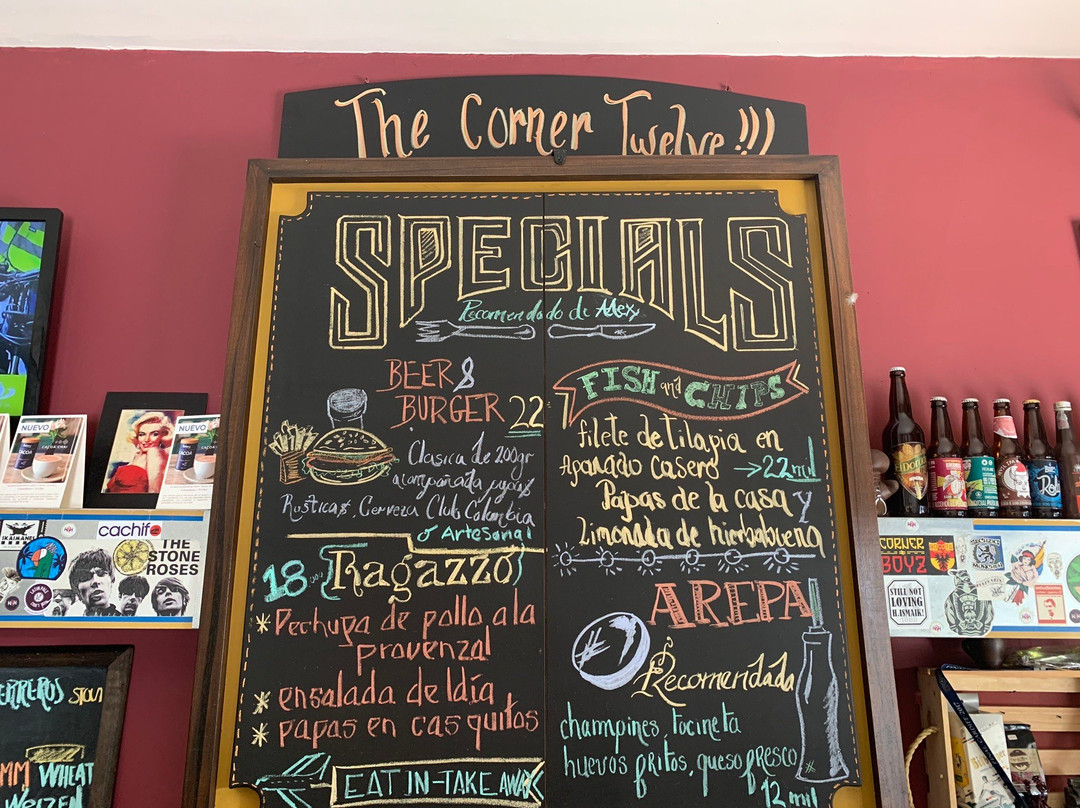 The Corner Twelve!!!
SPECIALS
Recomendado de Mexy
BEER &
BURGER 22
Clasica de 200gr
acompañada papas
Rusticas, Cerveza Club Colombia
ó Artesanal
18 mil Ragazzo
* Pechuga de pollo a la
provenzal
* ensalada del día
* papas en casquitos
EAT IN-TAKE AWAY
FISH and CHIPS
filete de tilapia en
Apanado casero → 22 mil
Papas de la casa y
limonada de hierbabuena
AREPA
Recomendada
champines, tocineta
huevos fritos, queso fresco
12 mil
NUEVO
NUEVO
cachifo
THE
STONE
ROSES
STOUT
MM WHEAT
WEIZEN
CORNER
BOYZ
STILL NOT
LOVING
H.ISMAIK!